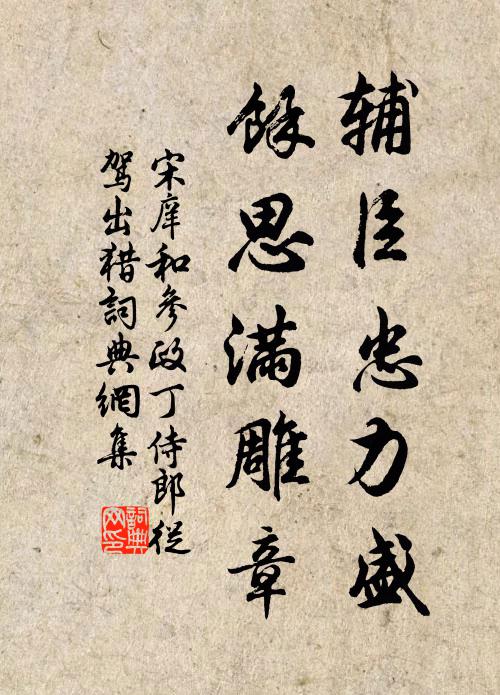 辅臣忠力盛
馀思满雕章
宋庠和参政丁侍郎從
驾出猎詞典網集
詞典
网印